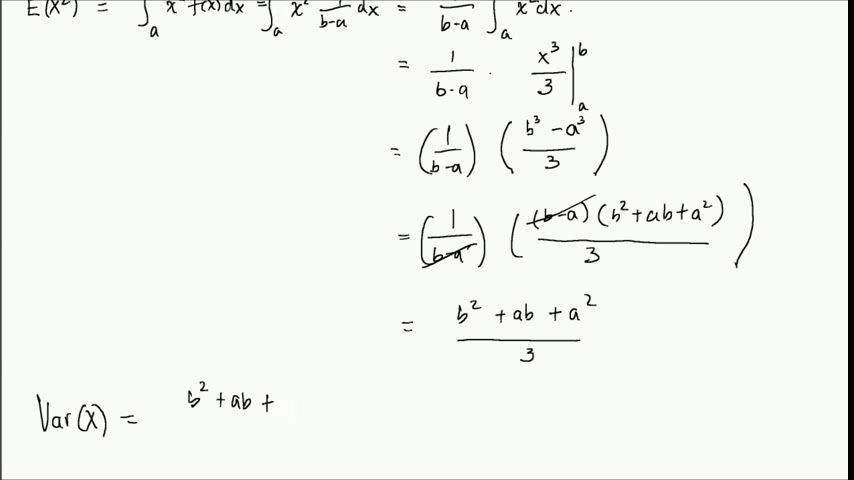 E(X²) = ∫ₐ x² f(x) dx = ∫ₐ x² 1/(b-a) dx = 1/(b-a) ∫ₐ x² dx.
= 1/(b-a) · x³/3 |ₐᵇ
= (1/(b-a)) ((b³ - a³)/3)
= (1/(b-a)) ((b-a)(b² + ab + a²)/3)
= (b² + ab + a²)/3
Var(X) = b² + ab +